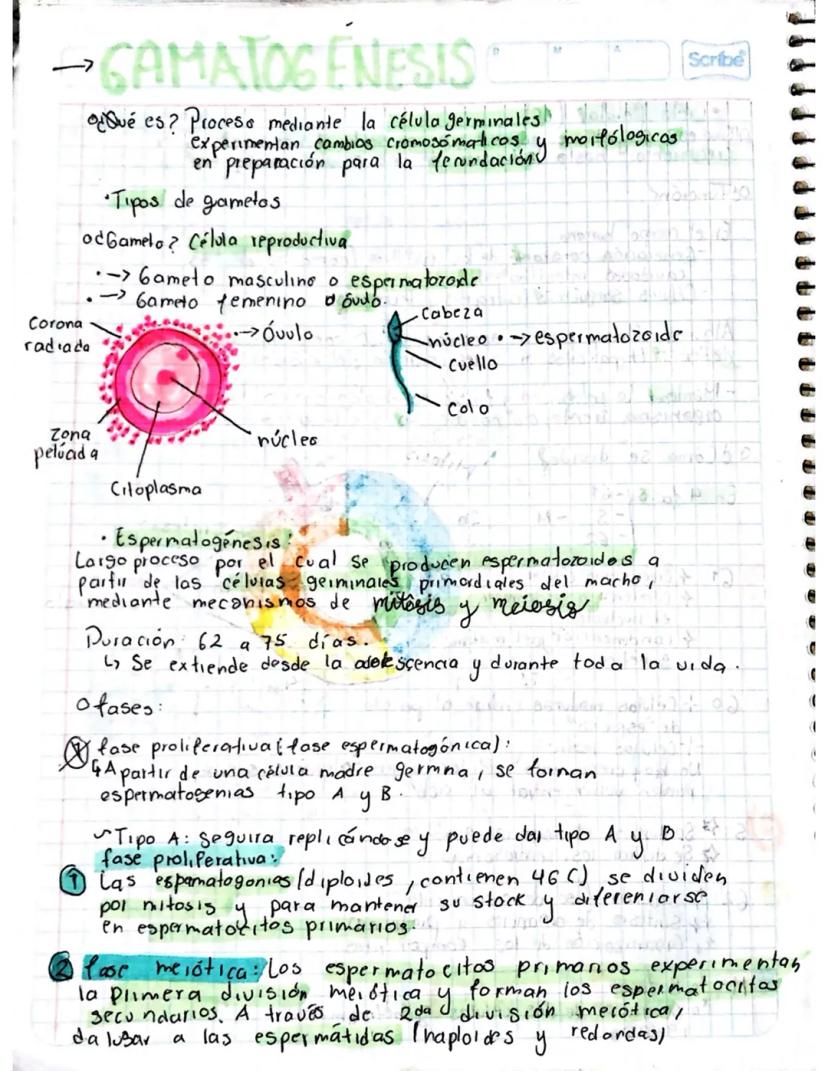 → GAMATOGÉNESIS
D M A
Scribe
o¿Qué es? Proceso mediante la célula germinales
experimentan cambios cromosómaticos y morfólogicos
en preparación para la fecundación
•Tipos de gametos
o¿Gameto? Célula reproductiva
•→ Gameto masculino o espermatozoide
•→ Gameto femenino o óvulo.
Corona
radiada
•→Óvulo
Zona
pelúada
Citoplasma
núcleo
Cabeza
núcleo •→ espermatozoide
Cuello
Cola
• Espermatogénesis:
Largo proceso por el cual se producen espermatozoides a
partir de las células germinales primordiales del macho,
mediante mecanismos de mitósis y meiosis
Duración: 62 a 75 días.
↳ Se extiende desde la adolescencia y durante toda la vida.
O fases:
1 fase proliferativa (fase espermatogónica):
↳A partir de una célula madre germna, se forman
espermatogenias tipo A y B.
~Tipo A: Seguira replicándose y puede dar tipo A y B.
fase proliferativa:
1 Las espamatogonias (diploides, contienen 46 C) se dividen
por mitosis y para mantener su stock y difereniarse
en espermatocitos primarios.
2 fase meiótica: Los espermatocitos primarios experimentan
la Primera división meiótica y forman los espermatocitas
secundarios. A través de 2da división meiótica,
da lugar a las espermátidas (haploides y redondas)